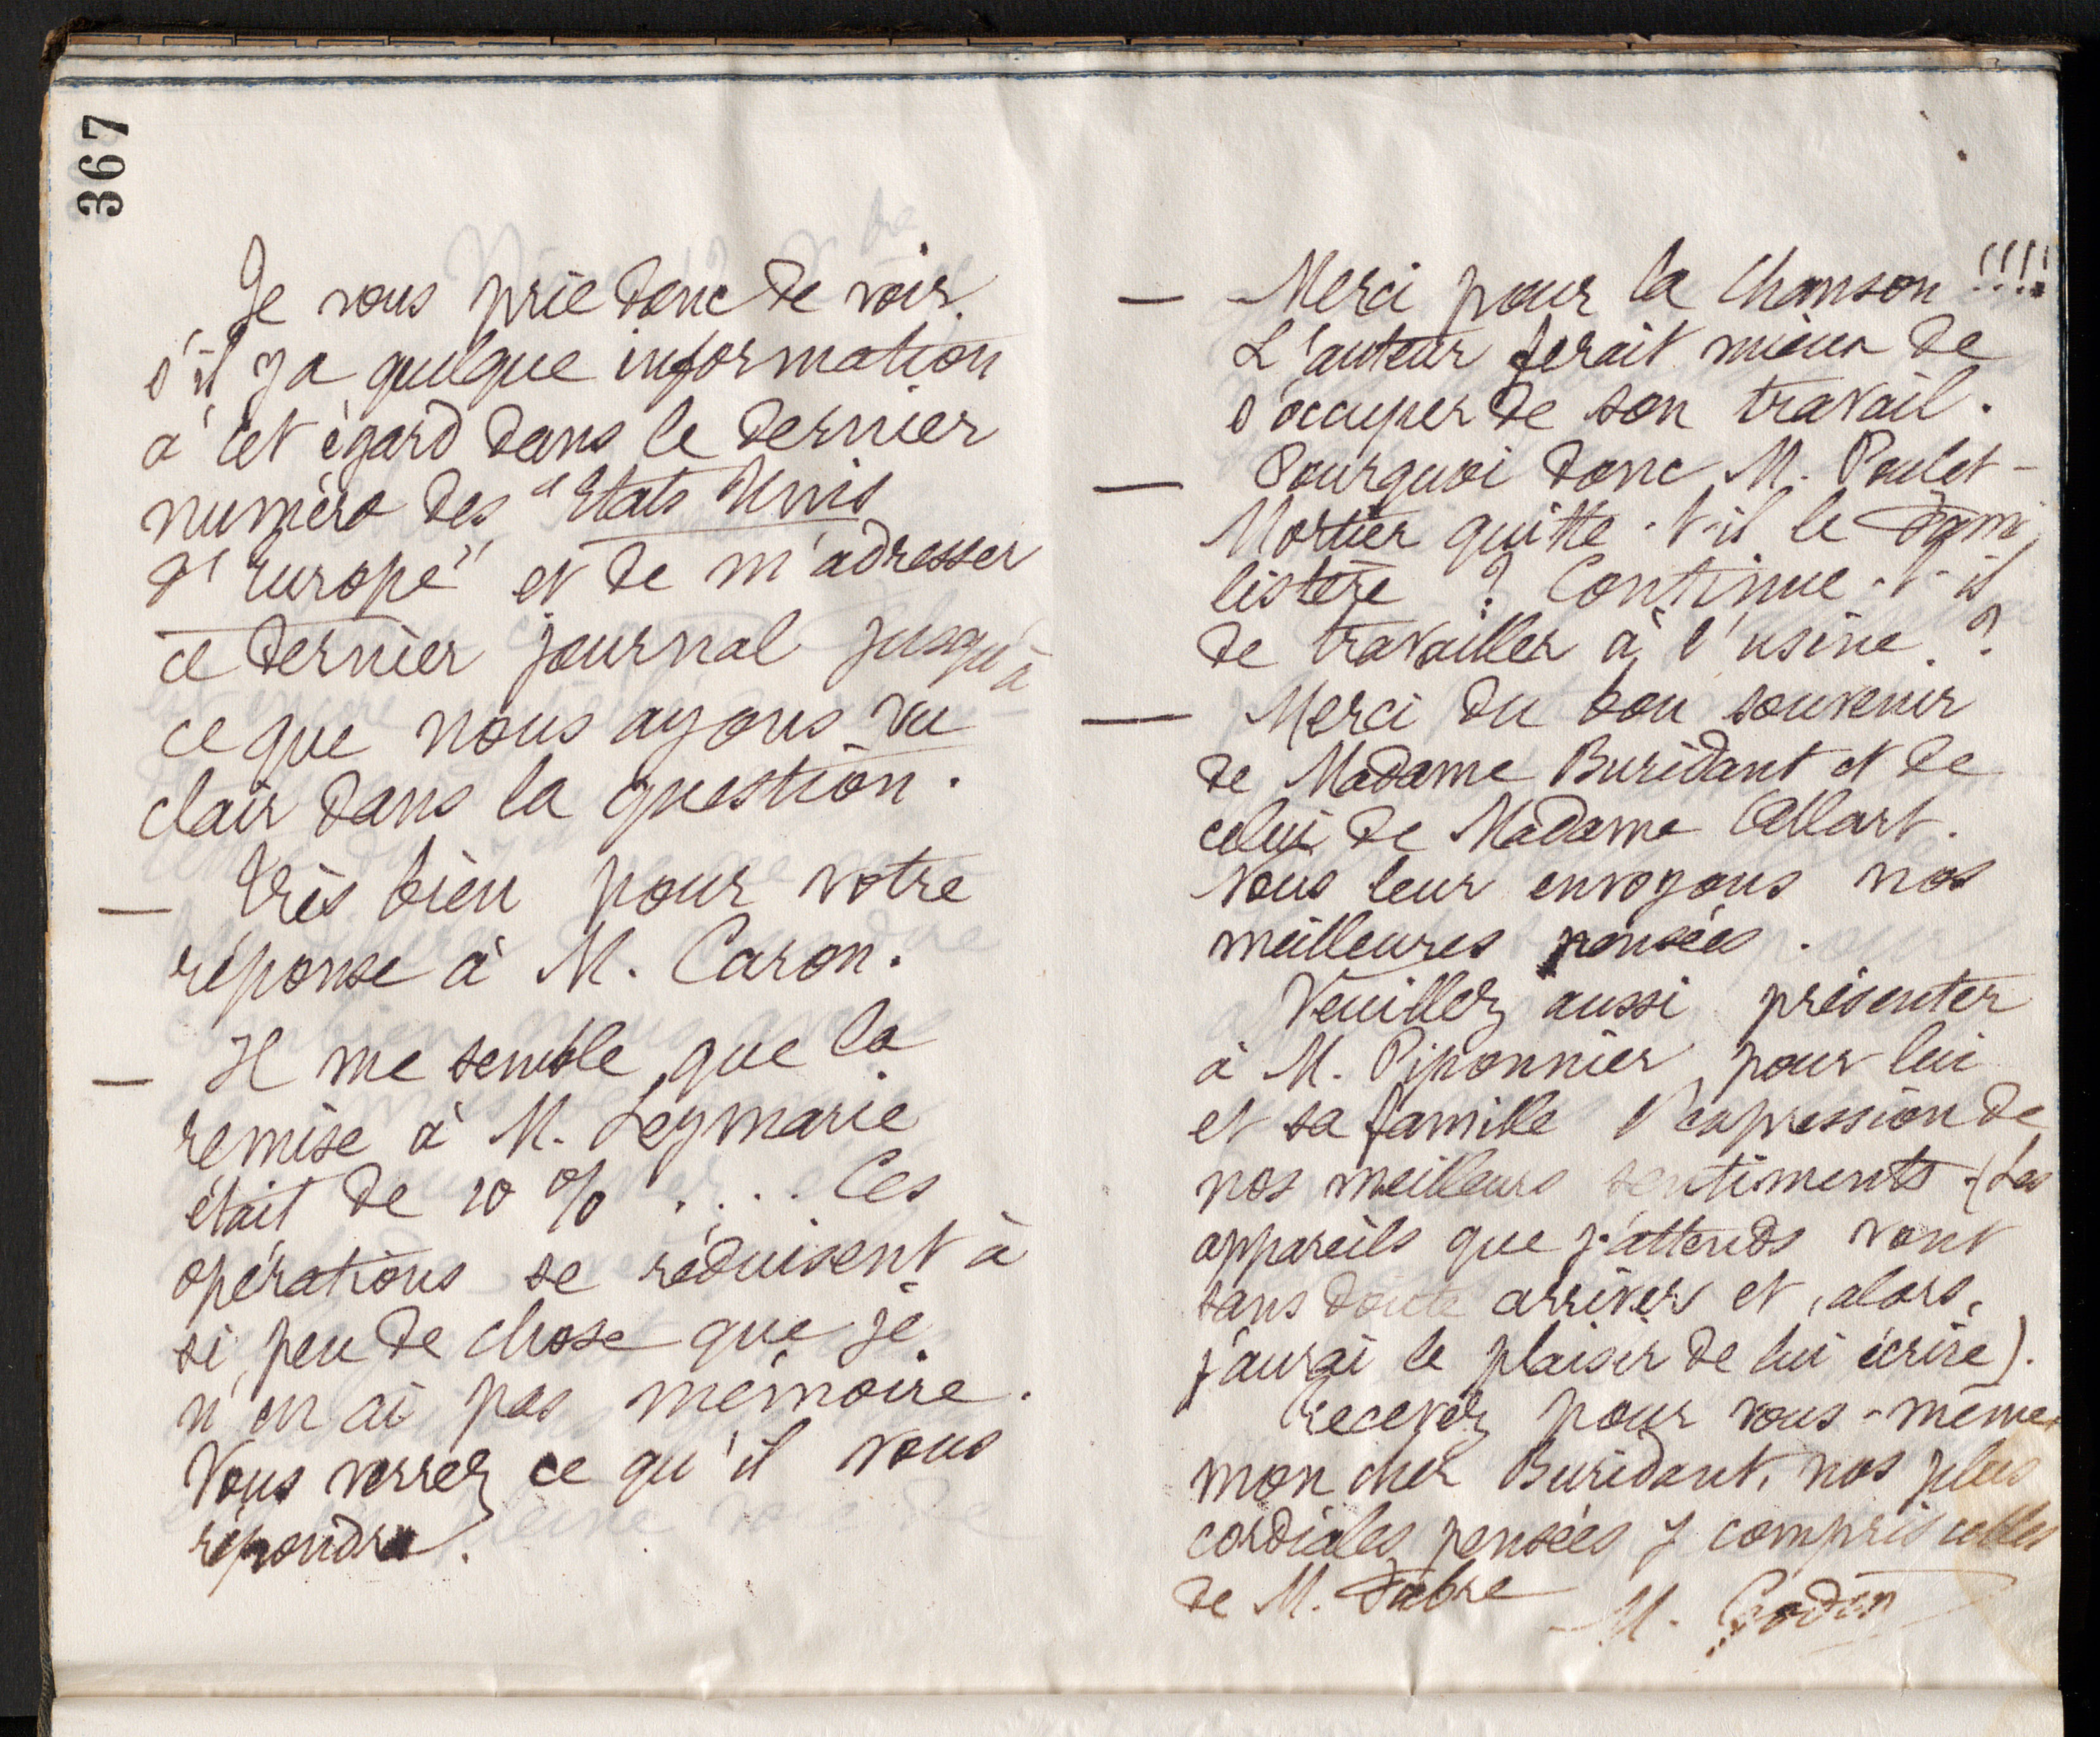 367
Je vous prie donc de voir
s'il y a quelque information
à cet égard dans le dernier
numéro des "Etats Unis
d'Europe" et de m'adresser
ce dernier journal jusqu'à
ce que nous ayons vu
clair dans la question.
— Très bien pour votre
réponse à M. Caron.
— Il me semble que la
remise à M. Leymarie
était de 10 % .... Ces
opérations se réduisent à
si peu de chose que je
n'en ai pas mémoire.
Vous verrez ce qu'il vous
répondra.
— Merci pour la chanson !!!!
L'auteur ferait mieux de
s'occuper de son travail.
— Pourquoi donc M. Poulet-
Mortier quitte-t-il le
? Continue-t-il
de travailler à l'usine ?
— Merci du bon souvenir
de Madame Buridant et de
celui de Madame Allart.
Nous leur envoyons nos
meilleures pensées.
Veuillez aussi présenter
à M. Piponnier pour lui
et sa famille l'expression de
nos meilleurs sentiments. (Les
appareils que j'attends vont
sans doute arriver et, alors,
j'aurai le plaisir de lui écrire).
Recevez pour vous-même
mon cher Buridant, nos plus
cordiales pensées y compris celles
de M. Fabre
M. Godin